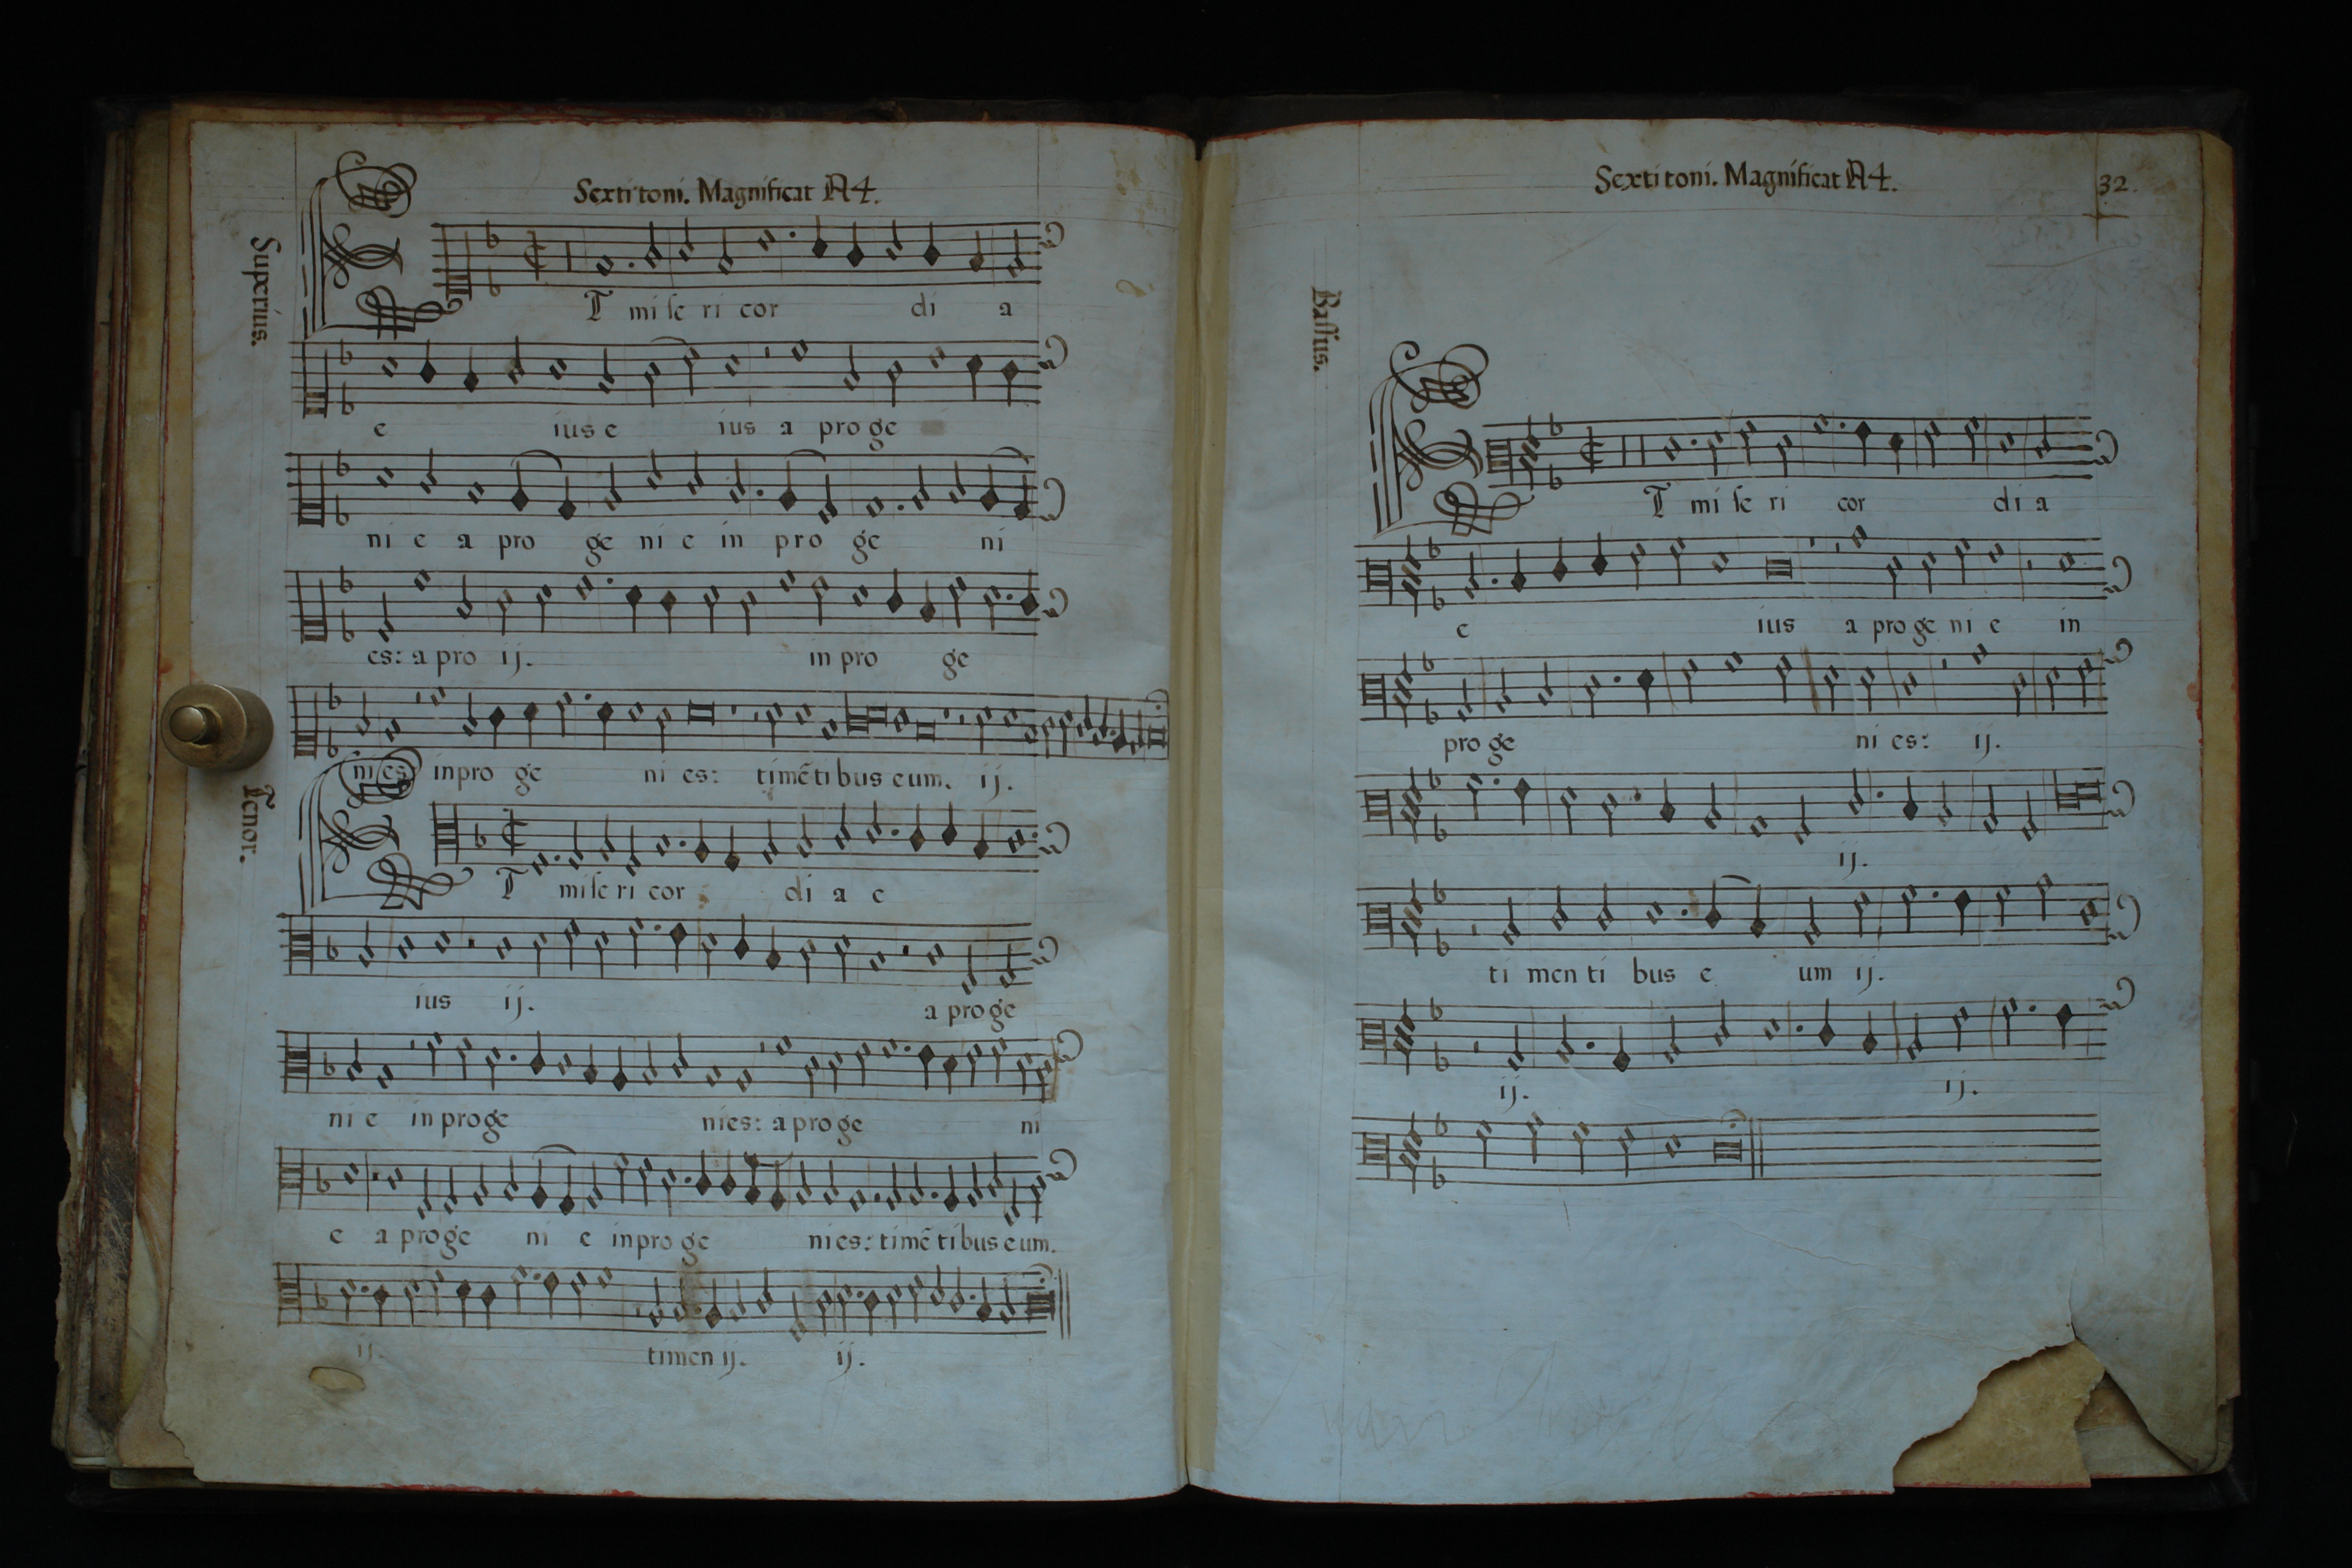 Sexti toni. Magnificat A4.
Superius.
Et mi se ri cor di a
e ius e ius a pro ge
ni e a pro ge ni e in pro ge ni
es: a pro ij. in pro ge
ni es in pro ge ni es: timẽ ti bus eum. ij.
Tenor.
Et mi se ri cor di a e
ius ij. a pro ge
ni e in pro ge nies: a pro ge ni
e a pro ge ni e in pro ge nies: timẽ ti bus eum.
ij. timen ij. ij.
Sexti toni. Magnificat A4.
32.
Bassus.
Et mi se ri cor di a
e ius a pro ge ni e in
pro ge ni es: ij.
ij.
ti men ti bus e um ij.
ij. ij.